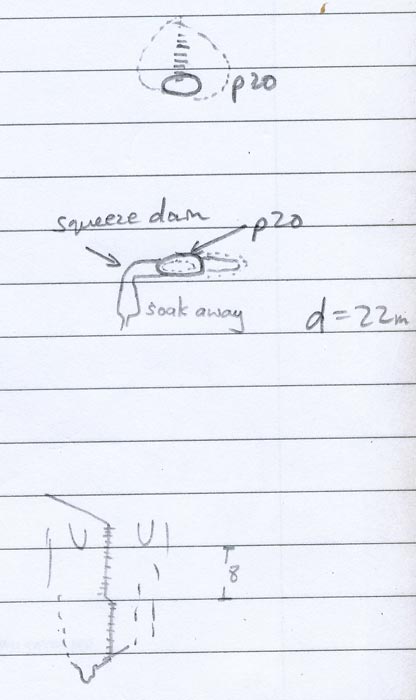 p20
squeeze down
p20
soak away
d = 22m
8